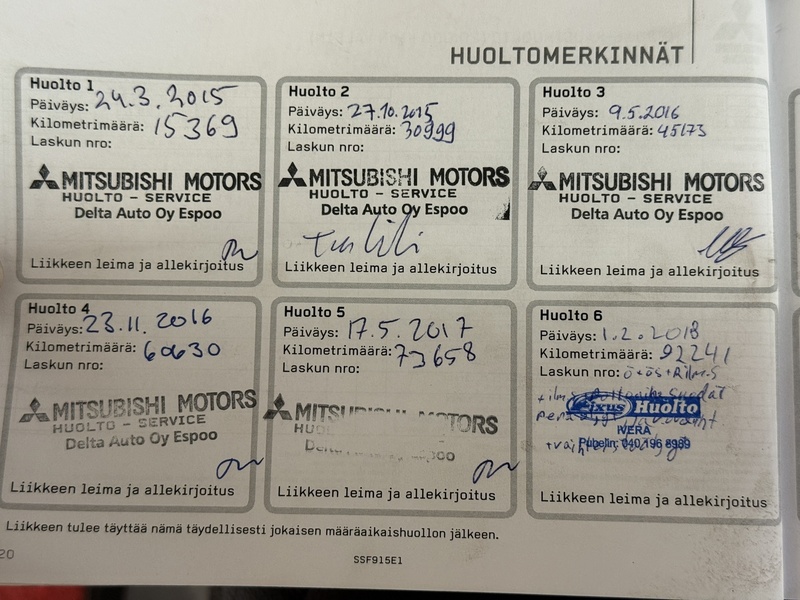 HUOLTOMERKINNÄT
Huolto 1
Päiväys: 24.3.2015
Kilometrimäärä: 15369
Laskun nro:
MITSUBISHI MOTORS
HUOLTO - SERVICE
Delta Auto Oy Espoo
Liikkeen leima ja allekirjoitus
Huolto 2
Päiväys: 27.10.2015
Kilometrimäärä: 30999
Laskun nro:
MITSUBISHI MOTORS
HUOLTO - SERVICE
Delta Auto Oy Espoo
Liikkeen leima ja allekirjoitus
Huolto 3
Päiväys: 9.5.2016
Kilometrimäärä: 45173
Laskun nro:
MITSUBISHI MOTORS
HUOLTO - SERVICE
Delta Auto Oy Espoo
Liikkeen leima ja allekirjoitus
Huolto 4
Päiväys: 23.11.2016
Kilometrimäärä: 60630
Laskun nro:
MITSUBISHI MOTORS
HUOLTO - SERVICE
Delta Auto Oy Espoo
Liikkeen leima ja allekirjoitus
Huolto 5
Päiväys: 17.5.2017
Kilometrimäärä: 73658
Laskun nro:
MITSUBISHI MOTORS
Liikkeen leima ja allekirjoitus
Huolto 6
Päiväys: 1.2.2018
Kilometrimäärä: 92241
Laskun nro: ö+ös+Rilm.S
Fixus Huolto
IVERA
Puhelin: 040 196 8989
Liikkeen leima ja allekirjoitus
Liikkeen tulee täyttää nämä täydellisesti jokaisen määräaikaishuollon jälkeen.
20
SSF915E1